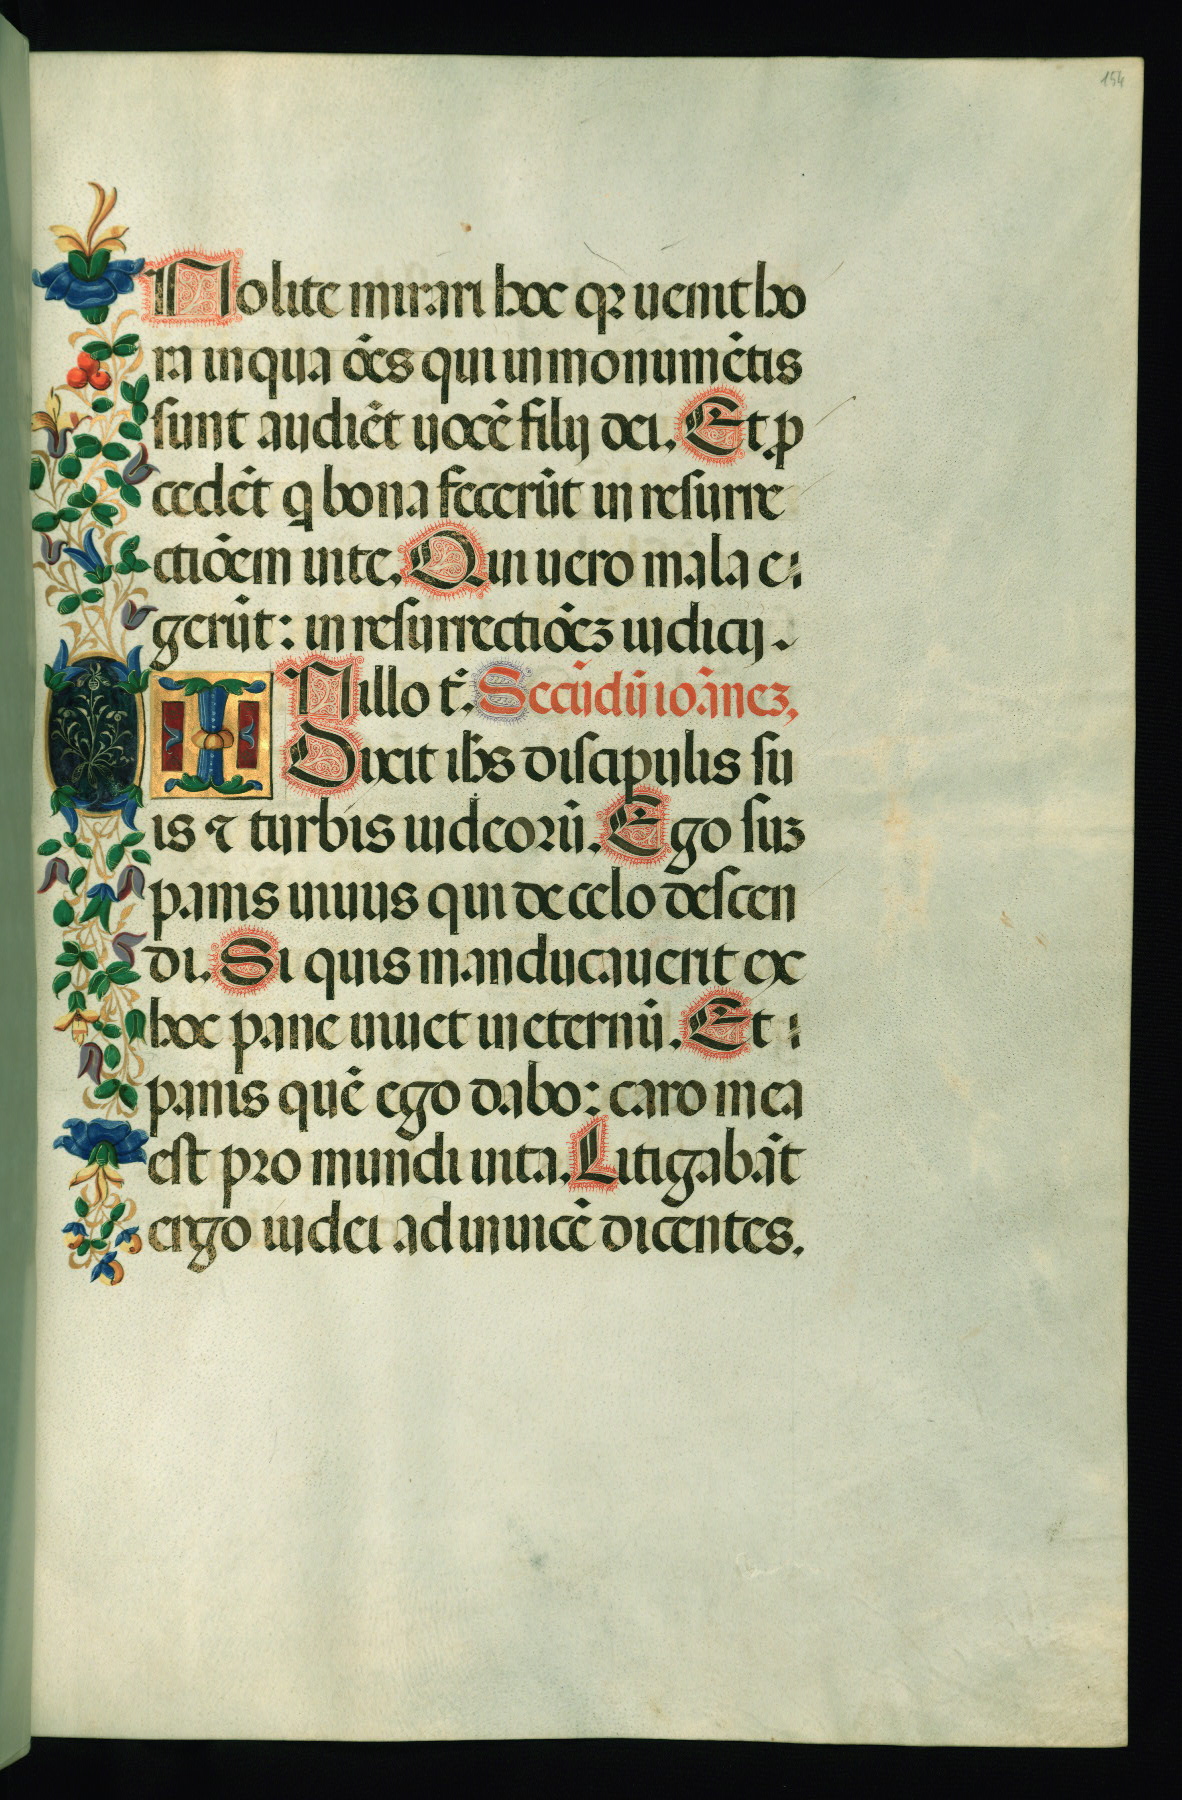 154
Nolite mirari hoc qꝛ uenit ho
ra in qua oēs qui in monumētis
sunt audiēt uocē filij dei. Et p
cedēt q bona fecerūt in resurre
ctiōem uite. Qui uero mala e
gerūt: in resurrectiōeꝫ iudicij.
I Nillo t̄. Secūdū ioāneꝫ.
Dixit ihs̄ discipulis su
is ⁊ turbis iudeoꝛū. Ego suꝫ
panis uiuus qui de celo descen
di. Si quis manducauerit ex
hoc pane uiuet in eternū. Et
panis quē ego dabo: caro mea
est pro mundi uita. Litigabāt
ergo iudei ad inuicē dicentes.